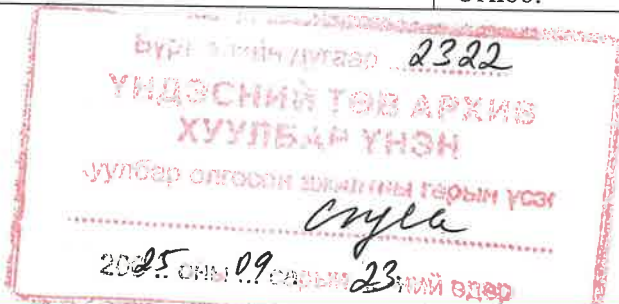 Бүртгэлийн дугаар 2322
ҮНДЭСНИЙ ТӨВ АРХИВ
ХУУЛБАР ҮНЭН
хуулбар олгосон ажилтны гарын үсэг
2025 оны 09 сарын 23ний өдөр